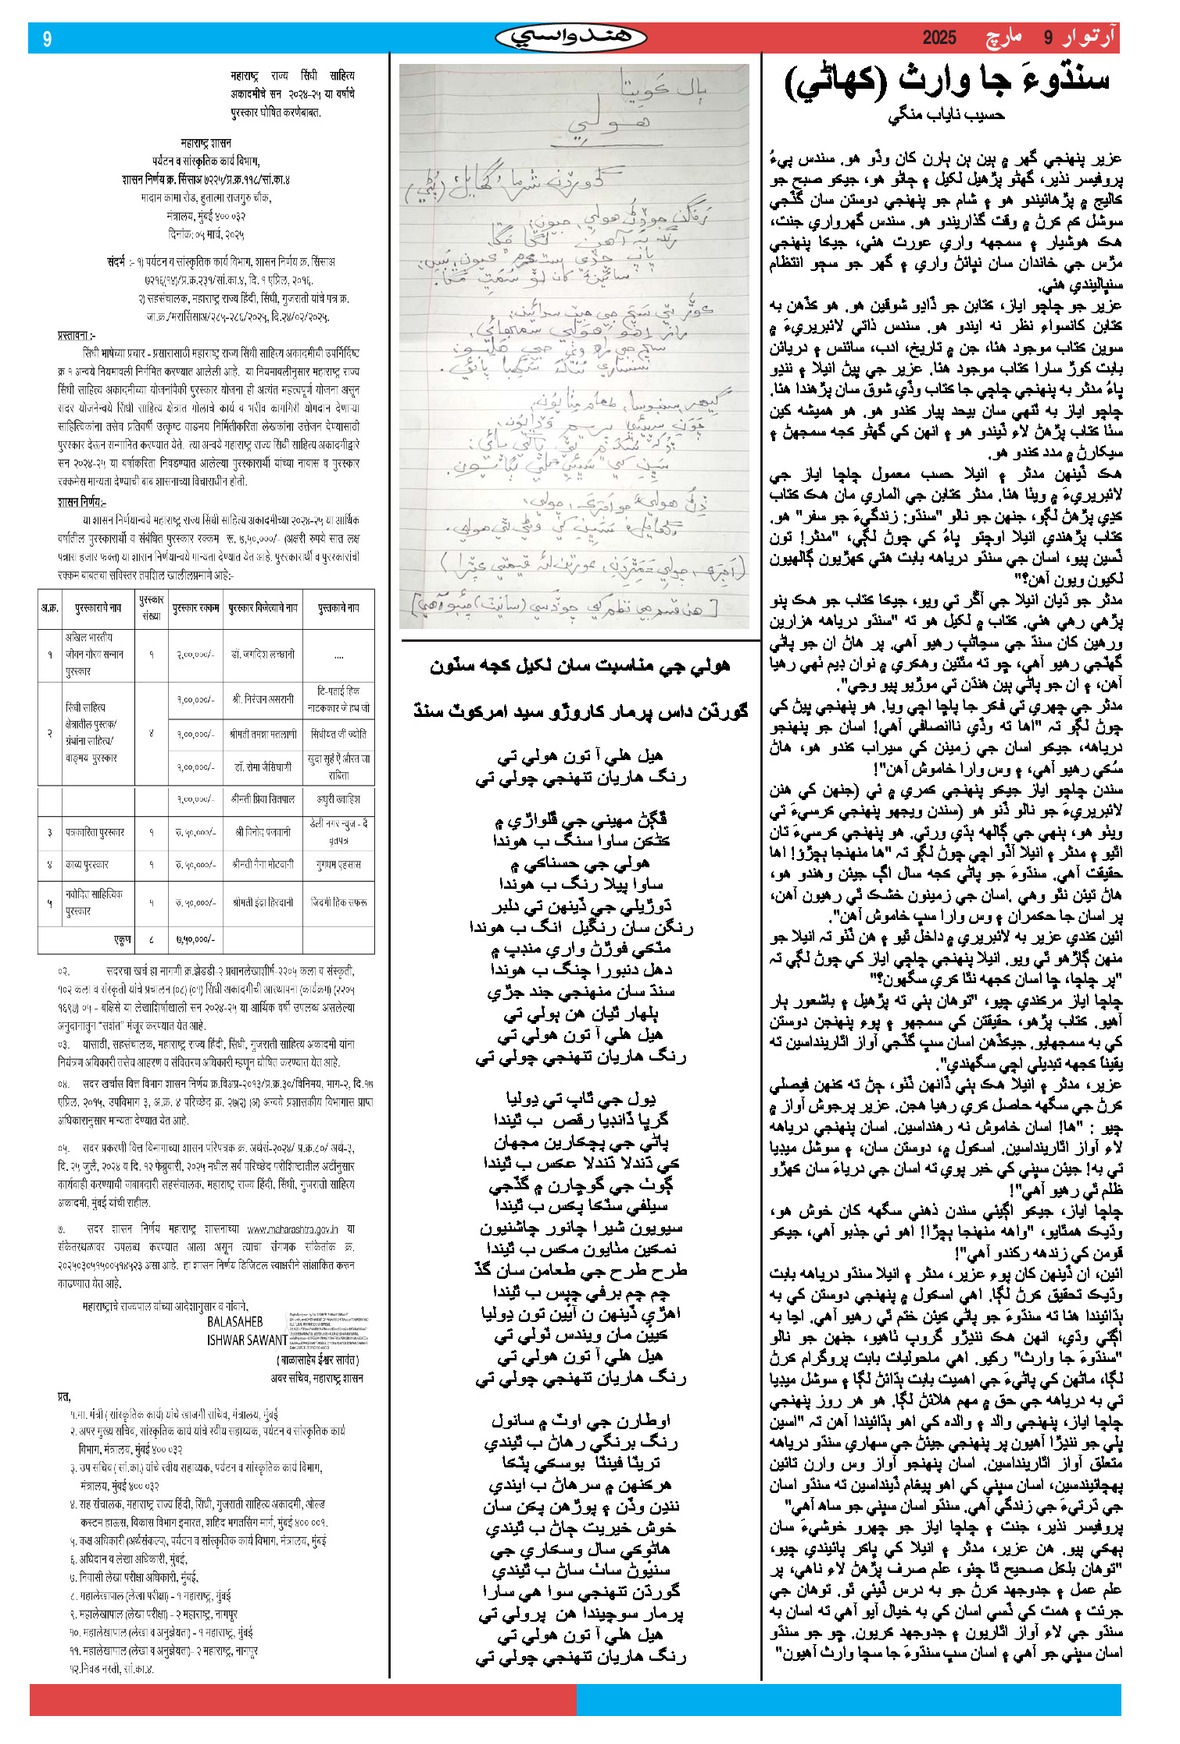 9
هندواسي
آرتوار 9 مارچ 2025
سنڌوءَ جا وارث (ڪهاڻي)
حسيب ناياب منگي
عزير پنهنجي گهر ۾ ٻين ٻن ٻارن کان وڏو هو. سندس پيءُ
پروفيسر نذير، گهڻو پڙهيل لکيل ۽ ڄاڻو هو، جيڪو صبح جو
ڪاليج ۾ پڙهائيندو هو ۽ شام جو پنهنجي دوستن سان گڏجي
سوشل ڪم ڪرڻ ۾ وقت گذاريندو هو. سندس گهرواري جنت،
هڪ هوشيار ۽ سمجهه واري عورت هئي، جيڪا پنهنجي
مڙس جي خاندان سان نباڻڻ واري ۽ گهر جو سڄو انتظام
سنڀاليندي هئي.
عزير جو چاچو اياز، ڪتابن جو ڏاڍو شوقين هو. هو ڪڏهن به
ڪتابن کانسواءِ نظر نه ايندو هو. سندس ذاتي لائبريريءَ ۾
سوين ڪتاب موجود هئا، جن ۾ تاريخ، ادب، سائنس ۽ دريائن
بابت ڪوڙ سارا ڪتاب موجود هئا. عزير جي ڀيڻ انيلا ۽ ننڍو
ڀاءُ مدثر به پنهنجي چاچي جا ڪتاب وڏي شوق سان پڙهندا هئا.
چاچو اياز به ٽنهي سان بيحد پيار ڪندو هو. هو هميشه کين
سٺا ڪتاب پڙهڻ لاءِ ڏيندو هو ۽ انهن کي گهڻو ڪجه سمجهڻ ۽
سيکارڻ ۾ مدد ڪندو هو.
هڪ ڏينهن مدثر ۽ انيلا حسب معمول چاچا اياز جي
لائبريريءَ ۾ ويٺا هئا. مدثر ڪتابن جي الماري مان هڪ ڪتاب
کڍي پڙهڻ لڳو، جنهن جو نالو "سنڌو: زندگيءَ جو سفر" هو.
ڪتاب پڙهندي انيلا اوچتو ڀاءُ کي چوڻ لڳي، "مدثر! تون
ڏسين پيو، اسان جي سنڌو درياهه بابت هتي کهڙيون ڳالهيون
لکيون ويون آهن؟"
مدثر جو ڌيان انيلا جي آڱر تي ويو، جيڪا ڪتاب جو هڪ پنو
پڙهي رهي هئي. ڪتاب ۾ لکيل هو ته "سنڌو درياهه هزارين
ورهين کان سنڌ جي سڃاڻپ رهيو آهي. پر هاڻ ان جو پاڻي
گهٽجي رهيو آهي، ڇو ته مٿئين وهڪري ۾ نوان ڊيم ٺهي رهيا
آهن، ۽ ان جو پاڻي ٻين هنڌن تي موڙيو پيو وڃي."
مدثر جي چهري تي فڪر جا پاڇا اچي ويا. هو پنهنجي ڀيڻ کي
چوڻ لڳو ته "اها ته وڏي ناانصافي آهي! اسان جو پنهنجو
درياهه، جيڪو اسان جي زمينن کي سيراب ڪندو هو، هاڻ
سُڪي رهيو آهي، ۽ وس وارا خاموش آهن"!
سندن چاچو اياز جيڪو پنهنجي ڪمري ۾ ئي (جنهن کي هنن
لائبريريءَ جو نالو ڏنو هو (سندن ويجهو پنهنجي ڪرسيءَ تي
ويٺو هو، ٻنهي جي ڳالهه ٻڌي ورتي. هو پنهنجي ڪرسيءَ تان
اٿيو ۽ مدثر ۽ انيلا آڏو اچي چوڻ لڳو ته "ها منهنجا ٻچڙو! اها
حقيقت آهي. سنڌوءَ جو پاڻي ڪجه سال اڳ جيئن وهندو هو،
هاڻ تيئن نٿو وهي .اسان جي زمينون خشڪ ٿي رهيون آهن،
پر اسان جا حڪمران ۽ وس وارا سڀ خاموش آهن".
ائين ڪندي عزير به لائبريري ۾ داخل ٿيو ۽ هن ڏٺو ته انيلا جو
منهن ڳاڙهو ٿي ويو. انيلا پنهنجي چاچي اياز کي چوڻ لڳي ته
"پر چاچا، ڇا اسان ڪجهه نٿا ڪري سگهون؟"
چاچا اياز مرڪندي چيو، "توهان ٻئي ته پڙهيل ۽ باشعور ٻار
آهيو. ڪتاب پڙهو، حقيقتن کي سمجهو ۽ پوءِ پنهنجن دوستن
کي به سمجهايو. جيڪڏهن اسان سڀ گڏجي آواز اٿارينداسين ته
يقيناً ڪجهه تبديلي اچي سگهندي."
عزير، مدثر ۽ انيلا هڪ ٻئي ڏانهن ڏٺو، ڄڻ ته ڪنهن فيصلي
ڪرڻ جي سگهه حاصل ڪري رهيا هجن. عزير پرجوش آواز ۾
چيو : "ها! اسان خاموش نه رهنداسين. اسان پنهنجي درياهه
لاءِ آواز اٿارينداسين. اسڪول ۾، دوستن سان، ۽ سوشل ميڊيا
تي به! جيئن سڀني کي خبر پوي ته اسان جي درياءَ سان ڪهڙو
ظلم ٿي رهيو آهي"!
چاچا اياز، جيڪو اڳيئي سندن ذهني سگهه کان خوش هو،
وڌيڪ همٿايو، "واهه منهنجا ٻچڙا! اهو ئي جذبو آهي، جيڪو
قومن کي زندهه رکندو آهي"!
ائين، ان ڏينهن کان پوءِ عزير، مدثر ۽ انيلا سنڌو درياهه بابت
وڌيڪ تحقيق ڪرڻ لڳا. اهي اسڪول ۾ پنهنجي دوستن کي به
ٻڌائيندا هئا ته سنڌوءَ جو پاڻي ڪيئن ختم ٿي رهيو آهي. اڃا به
اڳتي وڌي، انهن هڪ ننڍڙو گروپ ٺاهيو، جنهن جو نالو
"سنڌوءَ جا وارث" رکيو. اهي ماحوليات بابت پروگرام ڪرڻ
لڳا، ماڻهن کي پاڻيءَ جي اهميت بابت ٻڌائڻ لڳا ۽ سوشل ميڊيا
تي به درياهه جي حق ۾ مهم هلائڻ لڳا. هو هر روز پنهنجي
چاچا اياز، پنهنجي والد ۽ والده کي اهو ٻڌائيندا آهن ته "اسين
ڀلي جو ننڍڙا آهيون پر پنهنجي جيئڻ جي سهاري سنڌو درياهه
متعلق آواز اٿارينداسين. اسان پنهنجو آواز وس وارن تائين
پهچائينداسين، اسان سڀني کي اهو پيغام ڏينداسين ته سنڌو اسان
جي ڌرتيءَ جي زندگي آهي. سنڌو اسان سڀني جو ساهه آهي"
پروفيسر نذير، جنت ۽ چاچا اياز جو چهرو خوشيءَ سان
ٻهڪي پيو. هن عزير، مدثر ۽ انيلا کي ڀاڪر پائيندي چيو،
"توهان بلڪل صحيح ٿا چئو، علم صرف پڙهڻ لاءِ ناهي، پر
علم عمل ۽ جدوجهد ڪرڻ جو به درس ڏيئي ٿو. توهان جي
جرئت ۽ همت کي ڏسي اسان کي به خيال آيو آهي ته اسان به
سنڌو جي لاءِ آواز اٿاريون ۽ جدوجهد ڪريون. ڇو جو سنڌو
اسان سڀني جو آهي ۽ اسان سڀ سنڌوءَ جا سچا وارث آهيون"
ٻال ڪويتا
هولي
گورڌن شرما گهايل
هولي جي مناسبت سان لکيل ڪجه سٽون
گورڌن داس پرمار ڪاروڙو سيد امرڪوٽ سنڌ
هيل هلي آ تون هولي تي
رنگ هاريان تنهنجي چولي تي
ڦڳڻ مهيني جي ڦلواڙي ۾
ڪڻڪن ساوا سنگ ب هوندا
هولي جي حسناڪي ۾
ساوا پيلا رنگ ب هوندا
ڌوڙيلي جي ڏينهن تي دلبر
رنگن سان رنگيل انگ ب هوندا
مٽڪي فوڙڻ واري منڊپ ۾
دهل دنبورا چنگ ب هوندا
سنڌ سان منهنجي جند جڙي
ٻلهار ٿيان هن ٻولي تي
هيل هلي آ تون هولي تي
رنگ هاريان تنهنجي چولي تي
ڍول جي ٿاپ تي ڍوليا
گرڀا ڏانڊيا رقص ب ٿيندا
پاڻي جي پچڪارين مجهان
کي ڌنڌلا ڌنڌلا عڪس ب ٿيندا
ڳوٺ جي گوچارن ۾ گڏجي
سيلفي سٽڪا پڪس ب ٿيندا
سيويون شيرا چانور چاشنيون
نمڪين مٺايون مڪس ب ٿيندا
طرح طرح جي طعامن سان گڏ
چم چم برفي چپس ب ٿيندا
اهڙي ڏينهن ن آئين تون ڍوليا
ڪيئن مان ويندس ٽولي تي
هيل هلي آ تون هولي تي
رنگ هاريان تنهنجي چولي تي
اوطارن جي اوٽ ۾ سانول
رنگ برنگي رهاڻ ب ٿيندي
تريٽا فينٽا بوسڪي پٽڪا
هرڪنهن ۾ سرهاڻ ب ايندي
ننڍن وڏن ۽ پوڙهن پڪن سان
خوش خيريت ڄاڻ ب ٿيندي
هاڻوڪي سال وسڪاري جي
سنيوڻ ساٺ ساٺ ب ٿيندي
گورڌن تنهنجي سوا هي سارا
پرمار سوچيندا هن پرولي تي
هيل هلي آ تون هولي تي
رنگ هاريان تنهنجي چولي تي
महाराष्ट्र राज्य सिंधी साहित्य
अकादमीचे सन २०२४-२५ या वर्षाचे
पुरस्कार घोषित करणेबाबत.
महाराष्ट्र शासन
पर्यटन व सांस्कृतिक कार्य विभाग,
शासन निर्णय क्र. सिंसाअ ७२२५/प्र.क्र.११८/सां.का.४
मादाम कामा रोड, हुतात्मा राजगुरु चौक,
मंत्रालय, मुंबई ४०० ०३२
दिनांक: ०५ मार्च, २०२५
संदर्भ :- १) पर्यटन व सांस्कृतिक कार्य विभाग, शासन निर्णय क्र. सिंसाअ
७२१६(१४)/प्र.क्र.२३१/सां.का.४, दि. १ एप्रिल, २०१६.
२) सहसंचालक, महाराष्ट्र राज्य हिंदी, सिंधी, गुजराती यांचे पत्र क्र.
जा.क्र./मरासिंसाअ/२८५-२८६/२०२५, दि.२४/०२/२०२५.
प्रस्तावना :-
सिंधी भाषेच्या प्रचार - प्रसारासाठी महाराष्ट्र राज्य सिंधी साहित्य अकादमीची उपनिर्दिष्ट
क्र १ अन्वये नियमावली निर्गमित करण्यात आलेली आहे. या नियमावलीनुसार महाराष्ट्र राज्य
सिंधी साहित्य अकादमीच्या योजनांपैकी पुरस्कार योजना ही अत्यंत महत्वपूर्ण योजना असून
सदर योजनेन्वये सिंधी साहित्य क्षेत्रात मोलाचे कार्य व भरीव कामगिरी योगदान देणाऱ्या
साहित्यिकांना तसेच प्रतिवर्षी उत्कृष्ट वाङमय निर्मितीकरिता लेखकांना उत्तेजन देण्यासाठी
पुरस्कार देऊन सन्मानित करण्यात येते. त्या अन्वये महाराष्ट्र राज्य सिंधी साहित्य अकादमीद्वारे
सन २०२४-२५ या वर्षाकरिता निवडण्यात आलेल्या पुरस्कारार्थी यांच्या नावास व पुरस्कार
रक्कमेस मान्यता देण्याची बाब शासनाच्या विचाराधीन होती.
शासन निर्णय:-
या शासन निर्णयान्वये महाराष्ट्र राज्य सिंधी साहित्य अकादमीच्या २०२४-२५ या आर्थिक
वर्षातील पुरस्कारार्थी व संबंधित पुरस्कार रक्कम रू. ७,५०,०००/- (अक्षरी रुपये सात लक्ष
पन्नास हजार फक्त) या शासन निर्णयान्वये मान्यता देण्यात येत आहे. पुरस्कारार्थी व पुरस्कारांची
रक्कम बाबतचा सविस्तर तपशिल खालीलप्रमाणे आहे:-
अ.क्र. पुरस्काराचे नाव पुरस्कार संख्या पुरस्कार रक्कम पुरस्कार विजेत्याचे नाव पुस्तकाचे नाव
१ अखिल भारतीय जीवन गौरव सन्मान पुरस्कार १ २,००,०००/- डॉ. जगदिश लच्छानी ....
२ सिंधी साहित्य क्षेत्रातील पुस्तक/ ग्रंथांना साहित्य/ वाङ्मय पुरस्कार ४ १,००,०००/- श्री. निरंजन असरानी टि-पताई हिक नाटककार जे हथ जी
१,००,०००/- श्रीमती तमन्ना मतलाणी सिंधीयत जी ज्योति
१,००,०००/- डॉ. रोमा जैसिंघानी खुदा सुहं ऐं औरत जा राबिता
१,००,०००/- श्रीमती प्रिया सितपाल अधुरी ख्वाहिश
३ पत्रकारिता पुरस्कार १ रु. ५०,०००/- श्री विनोद पंजवानी डेली नगर न्यूज - दै वृतपत्र
४ काव्य पुरस्कार १ रु. ५०,०००/- श्रीमती नैना मोटवानी गुमथम एहसास
५ नवोदित साहित्यिक पुरस्कार १ रु. ५०,०००/- श्रीमती इंद्रा हिरदानी जिंदगी हिक सफरू
एकूण ८ ७,५०,०००/-
०२. सदरचा खर्च हा मागणी क्र.झेडडी-२ प्रधानलेखाशीर्ष-२२०५ कला व संस्कृती,
१०२ कला व संस्कृती यांचे प्रचालन (०८) (०१) सिंधी अकादमीची आस्थापना (कार्यक्रम) (२२०५
१६१७) ०५ - बक्षिसे या लेखाशिर्षाखाली सन २०२४-२५ या आर्थिक वर्षी उपलब्ध असलेल्या
अनुदानातून "सशंत" मंजूर करण्यात येत आहे.
०३. यासाठी, सहसंचालक, महाराष्ट्र राज्य हिंदी, सिंधी, गुजराती साहित्य अकादमी यांना
नियंत्रण अधिकारी तसेच आहरण व संवितरण अधिकारी म्हणून घोषित करण्यात येत आहे.
०४. सदर खर्चास वित्त विभाग शासन निर्णय क्र.विअप्र-२०१३/प्र.क्र.३०/विनियम, भाग-२, दि.१७
एप्रिल, २०१५, उपविभाग ३, अ.क्र. ४ परिच्छेद क्र. २७(२) (अ) अन्वये प्रशासकीय विभागास प्राप्त
अधिकारानुसार मान्यता देण्यात येत आहे.
०५. सदर प्रकरणी वित्त विभागाच्या शासन परिपत्रक क्र. अर्थसं-२०२४/ प्र.क्र.८०/ अर्थ-३,
दि. २५ जुलै, २०२४ व दि. १२ फेब्रुवारी, २०२५ मधील सर्व परिच्छेद परिशिष्टातील अटींनुसार
कार्यवाही करण्याची जबाबदारी सहसंचालक, महाराष्ट्र राज्य हिंदी, सिंधी, गुजराती साहित्य
अकादमी, मुंबई यांची राहील.
७. सदर शासन निर्णय महाराष्ट्र शासनाच्या www.maharashtra.gov.in या
संकेतस्थळावर उपलब्ध करण्यात आला असून त्याचा संगणक सांकेतांक क्र.
२०२५०३०५१५००५१४५२३ असा आहे. हा शासन निर्णय डिजिटल स्वाक्षरीने सांक्षांकित करुन
काढण्यात येत आहे.
महाराष्ट्राचे राज्यपाल यांच्या आदेशानुसार व नांवाने,
BALASAHEB
ISHWAR SAWANT
( बाळासाहेब ईश्वर सावंत )
अवर सचिव, महाराष्ट्र शासन
प्रत,
१.मा. मंत्री ( सांस्कृतिक कार्य) यांचे खाजगी सचिव, मंत्रालय, मुंबई
२. अपर मुख्य सचिव, सांस्कृतिक कार्य यांचे स्वीय सहाय्यक, पर्यटन व सांस्कृतिक कार्य
विभाग, मंत्रालय, मुंबई ४०० ०३२
३. उप सचिव ( सां.का.) यांचे स्वीय सहाय्यक, पर्यटन व सांस्कृतिक कार्य विभाग,
मंत्रालय, मुंबई ४०० ०३२
४. सह संचालक, महाराष्ट्र राज्य हिंदी, सिंधी, गुजराती साहित्य अकादमी, ओल्ड
कस्टम हाऊस, विकास विभाग इमारत, शहिद भगतसिंग मार्ग, मुंबई ४०० ००१.
५. कक्ष अधिकारी (अर्थसंकल्प), पर्यटन व सांस्कृतिक कार्य विभाग, मंत्रालय, मुंबई
६. अधिदान व लेखा अधिकारी, मुंबई,
७. निवासी लेखा परीक्षा अधिकारी, मुंबई,
८. महालेखापाल (लेखा परीक्षा) - १ महाराष्ट्र, मुंबई
९. महालेखापाल (लेखा परीक्षा) - २ महाराष्ट्र, नागपूर
१०. महालेखापाल (लेखा व अनुज्ञेयता) - १ महाराष्ट्र, मुंबई
११. महालेखापाल (लेखा व अनुज्ञेयता)- २ महाराष्ट्र, नागपूर
१२.निवड नस्ती, सां.का.४.